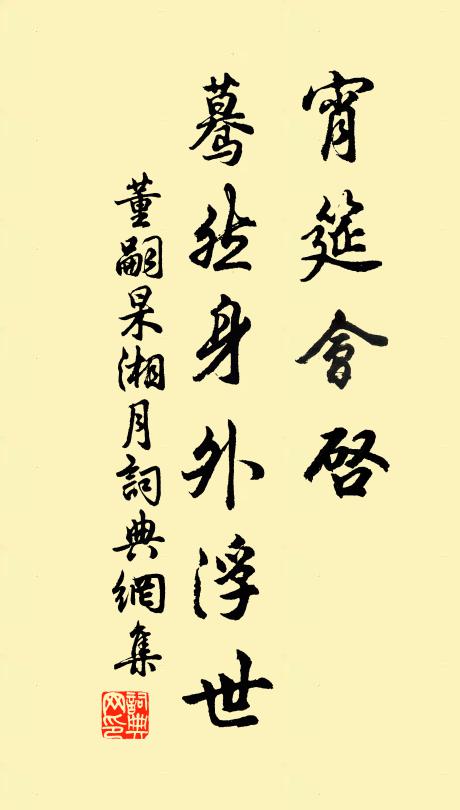 宵筵會啓
驀然身外浮世
董嗣杲湘月詞典網集
詞典網印